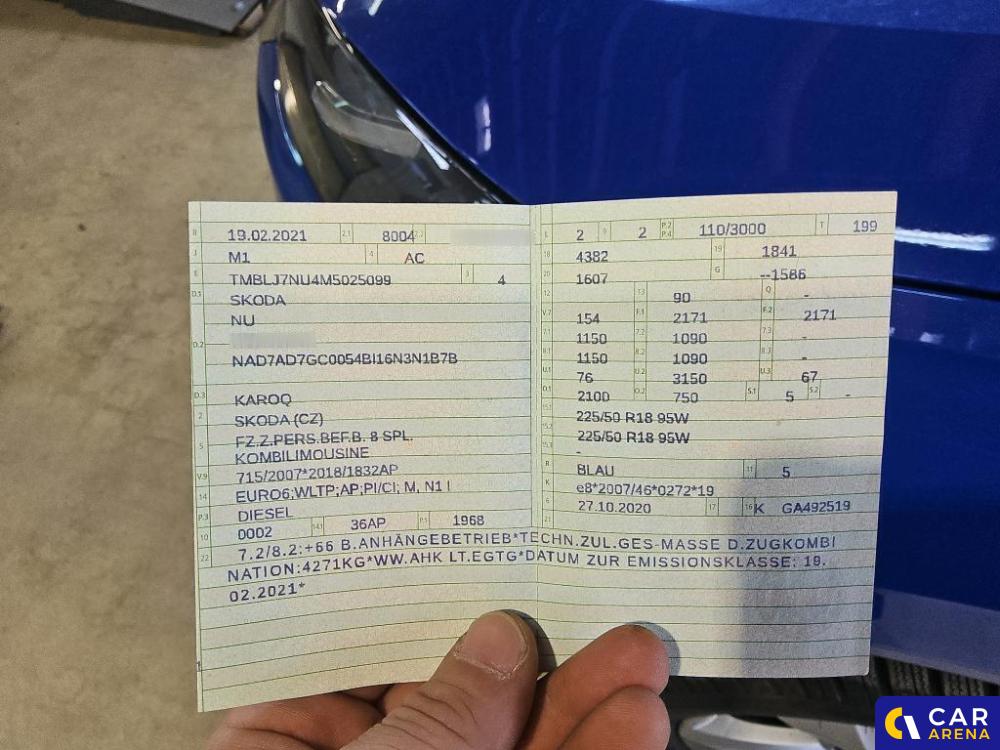 B 19.02.2021 2.1 8004 2.2
J M1 4 AC
E TMBLJ7NU4M5025099 3 4
D.1 SKODA
NU
D.2
NAD7AD7GC0054BI16N3N1B7B
D.3 KAROQ
2 SKODA (CZ)
5 FZ.Z.PERS.BEF.B. 8 SPL.
KOMBILIMOUSINE
V.9 715/2007*2018/1832AP
14 EURO6;WLTP;AP;PI/CI; M, N1 I
P.3 DIESEL
10 0002 14.1 36AP P.1 1968
L 2 9 2 P.2 P.4 110/3000 T 199
18 4382 19 1841
20 1607 G --1586
12 13 90 Q -
V.7 154 F.1 2171 F.2 2171
7.1 1150 7.2 1090 7.3 -
8.1 1150 8.2 1090 8.3 -
U.1 76 U.2 3150 U.3 67
O.1 2100 O.2 750 S.1 5 S.2 -
15.1 225/50 R18 95W
15.2 225/50 R18 95W
15.3 -
R BLAU 11 5
K e8*2007/46*0272*19
6 27.10.2020 17 16 K GA492519
21
22 7.2/8.2:+66 B.ANHÄNGEBETRIEB*TECHN.ZUL.GES-MASSE D.ZUGKOMBI
NATION:4271KG*WW.AHK LT.EGTG*DATUM ZUR EMISSIONSKLASSE: 19.
02.2021*
CAR
ARENA